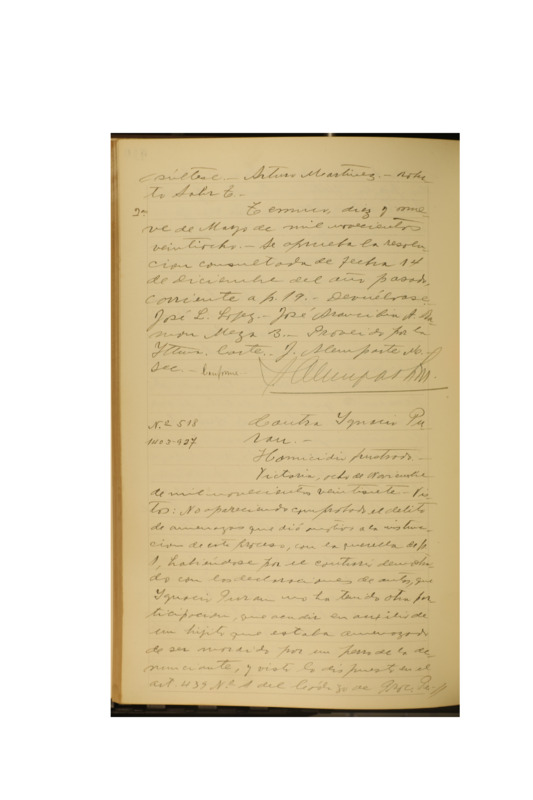 súltese.- Arturo Martínez.- Rober
to Sahr E.-
2ª Temuco, diez y nue-
ve de Mayo de mil novecientos
veintiocho.- Se aprueba la resolu-
cion consultada de fecha 14
de diciembre del año pasado,
corriente a f. 19.- Devuélvase.
José L. Lopez.- José Arancibia A. Ra-
mon Meza B.- Proveido por la
Iltma. Corte. J. Alemparte M.
Sec.- Conforme
N.º 518 Contra Ignacio Pu
1403-927 ran.-
Homicidio frustrado.-
Victoria, ocho de Noviembre
de mil novecientos veintisiete.- Vis
tos: No apareciendo comprobado el delito
de amenazas que dió motivo a la instruc-
cion de este proceso, con la querella de f.
1, habiéndose por el contrario
do con las declaraciones de autos, que
Ignacio Puran no ha tenido otra par
ticipacion, que acudir en ausilio de
un hijito que estaba amenazado
de ser mordido por un perro de la de
nunciante, y visto lo dispuesto en el
art. 439 N.º 1 del Código de Proc. Pe-